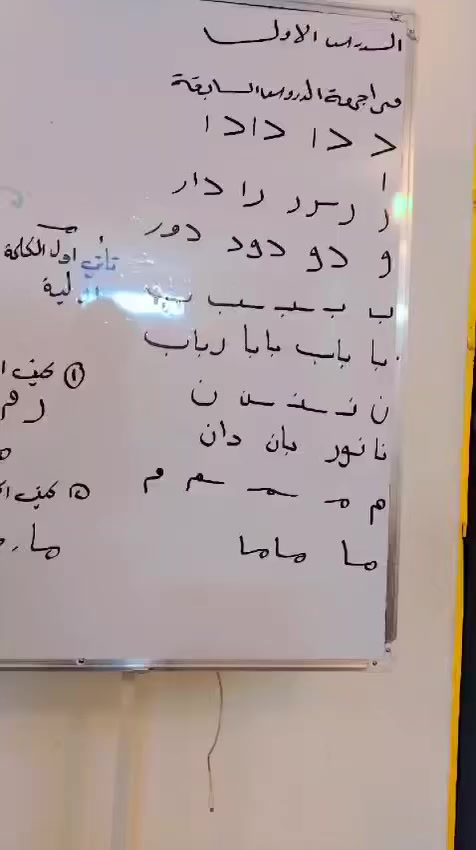 الدرس الاول
مراجعة الدروس السابقة
د دا دادا
ا
ر ر ـر را دار
و دو دود دور
ب بـ ـبـ ـب ب
با باب بابا رباب
ن نـ ـنـ ـن ن
نا نور بان دان
م مـ ـمـ ـم م
ما ماما
تأتي اول الكلمة
① كيف
② كيف